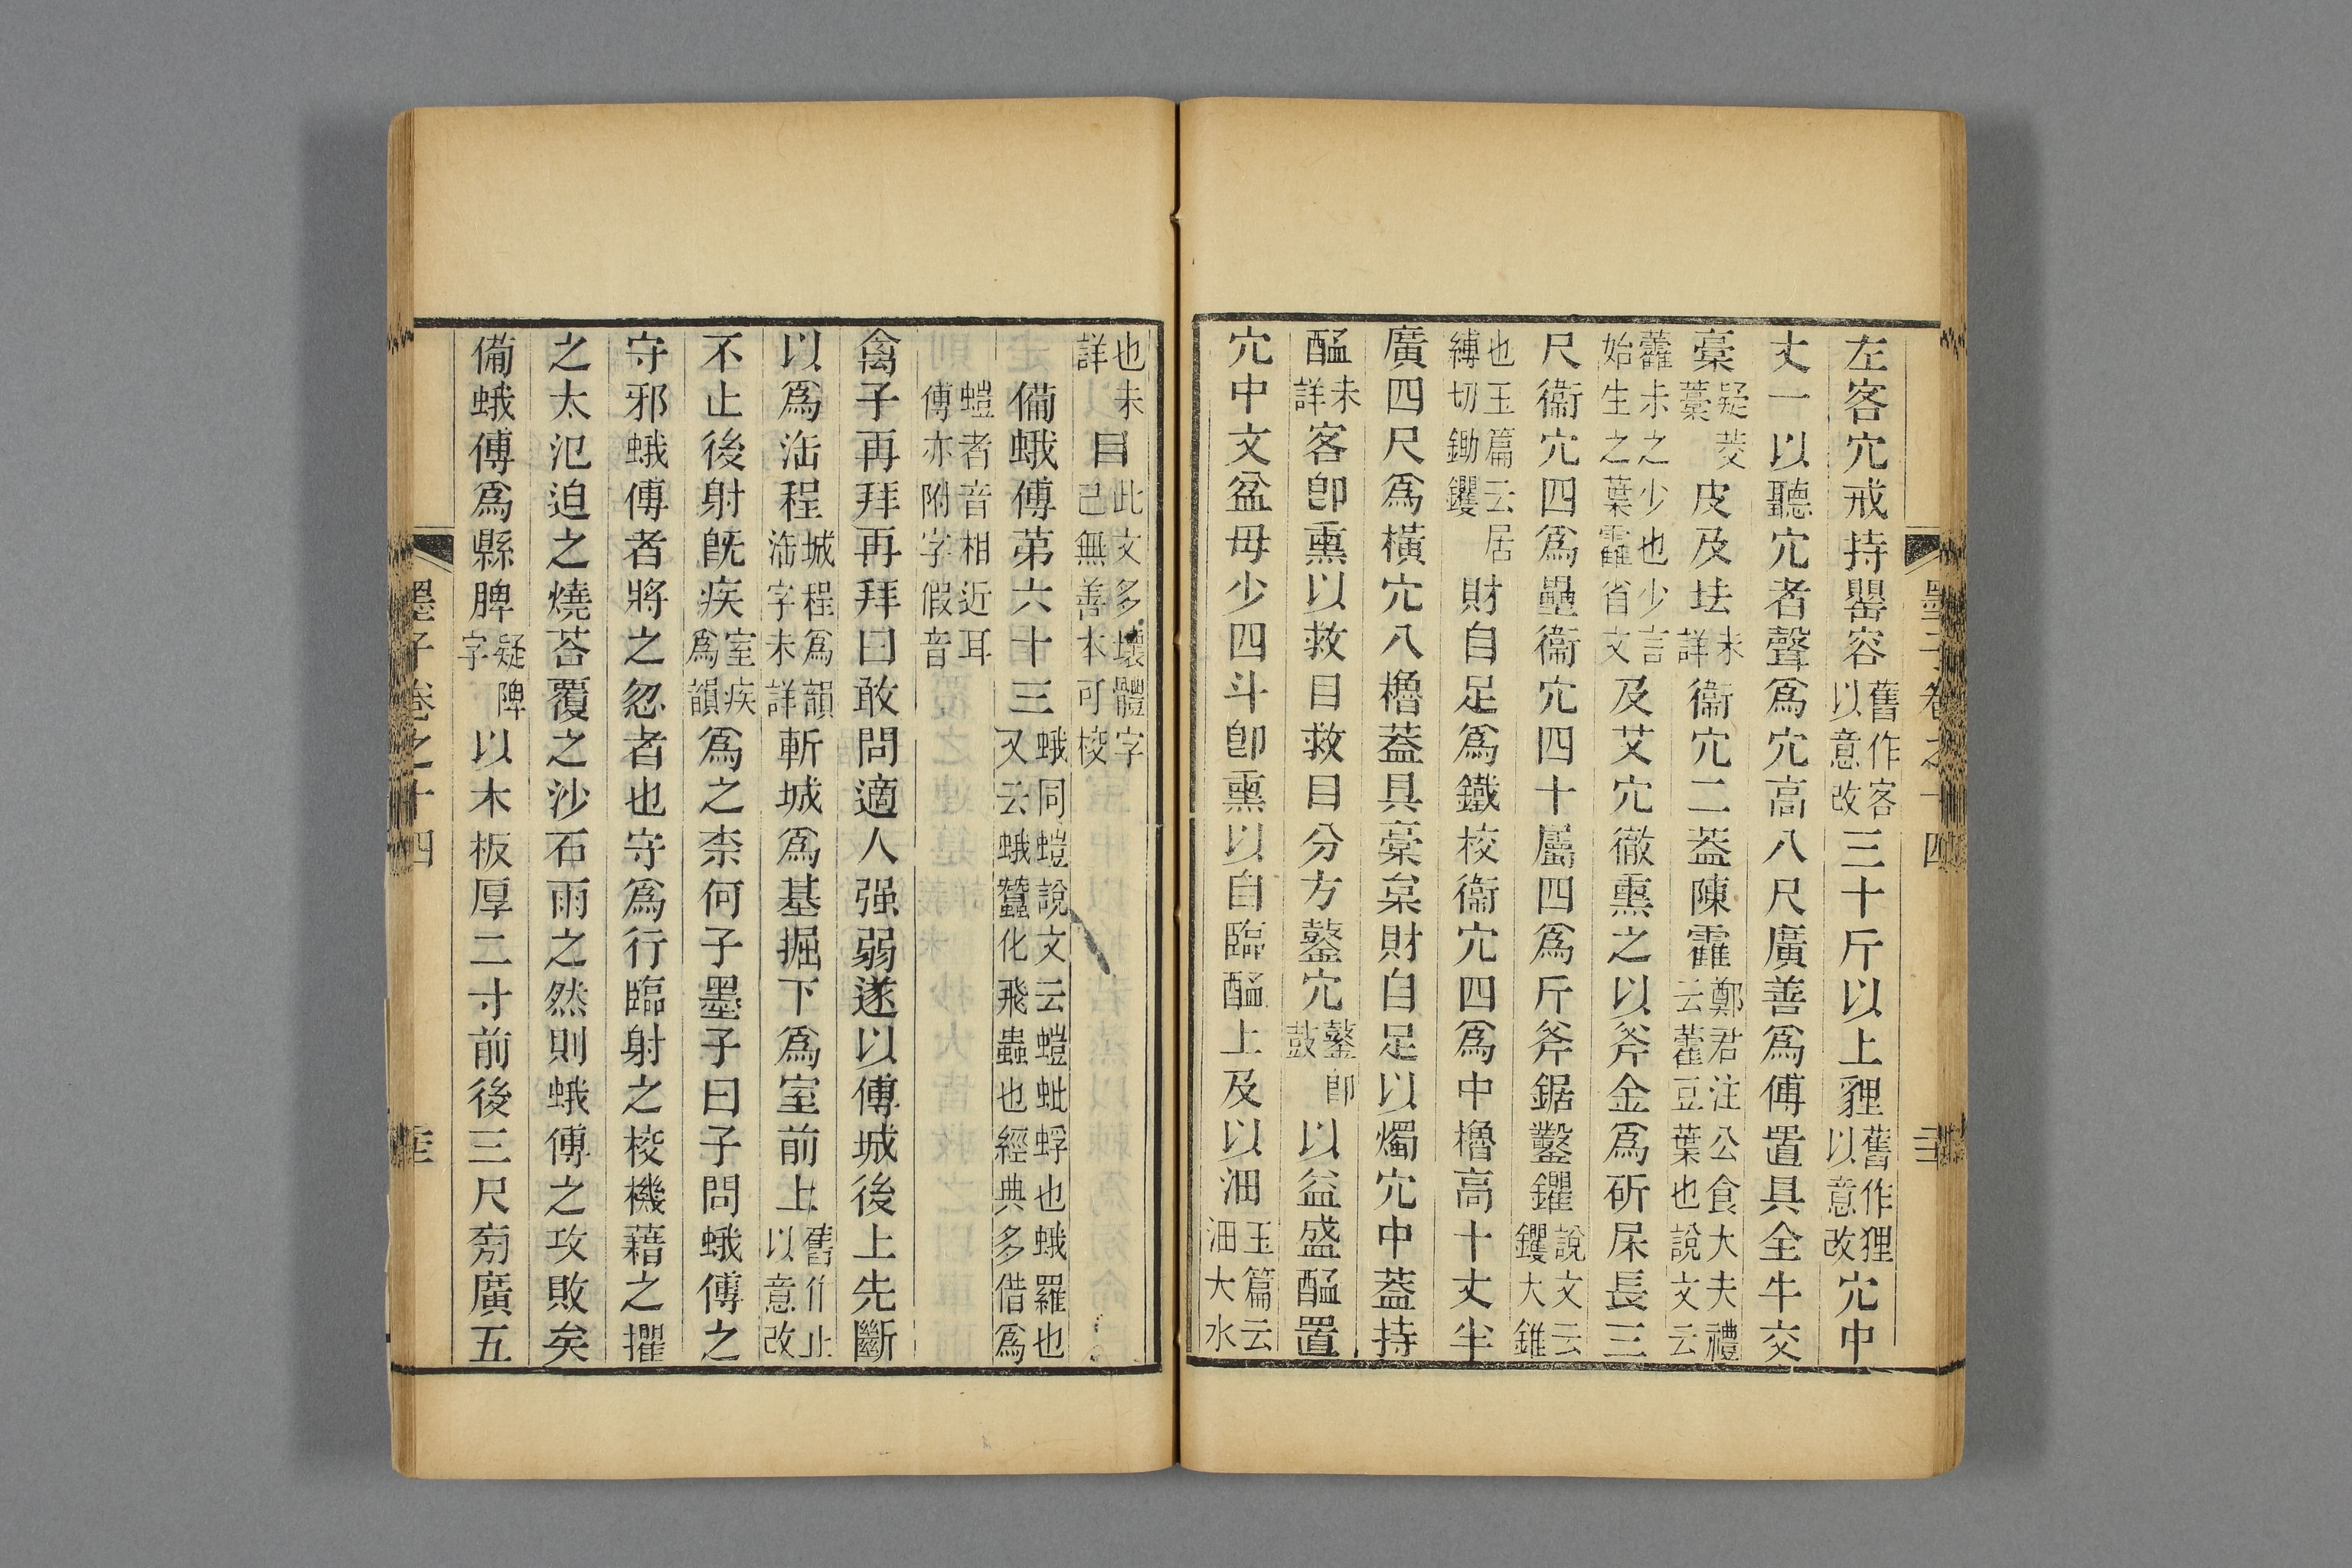 左客穴戒持罌容舊作客以意改三十斤以上貍舊作狸以意改穴中
丈一以聽穴者聲爲穴高八尺廣善爲傅置具全牛交
槀疑茭藁皮及㘫未詳衞穴二蓋陳靃鄭君注公食大夫禮云藿豆葉也說文云
藿尗之少也少言始生之葉靃省文及艾穴徹熏之以斧金爲斫杘長三
尺衞穴四爲壘衞穴四十屬四爲斤斧鋸鑿鑺說文云钁大錐
也玉篇云居縛切鋤钁財自足爲鐵校衞穴四爲中櫓高十丈半
廣四尺爲橫穴八櫓蓋具槀枲財自足以燭穴中蓋持
醖未詳客卽熏以救目救目分方鼜穴鼜卽鼓以益盛醖置
穴中文盆毋少四斗卽熏以自臨醖上及以沺玉篇云沺大水
墨子卷之十四
也未詳目此文多壞體字已無善本可校
備蛾傅第六十三蛾同螘說文云螘蚍蜉也蛾羅也又云蛾蠶化飛蟲也經典多借爲
螘者音相近耳傅亦附字假音
禽子再拜再拜曰敢問適人强弱遂以傅城後上先斷
以爲㳒程城程爲韻㳒字未詳斬城爲基掘下爲室前上舊作止以意改
不止後射旣疾室疾爲韻爲之柰何子墨子曰子問蛾傅之
守邪蛾傅者將之忽者也守爲行臨射之校機藉之擢
之太氾迫之燒荅覆之沙石雨之然則蛾傅之攻敗矣
備蛾傅爲縣脾疑陴字以木板厚二寸前後三尺旁廣五
墨子卷之十四